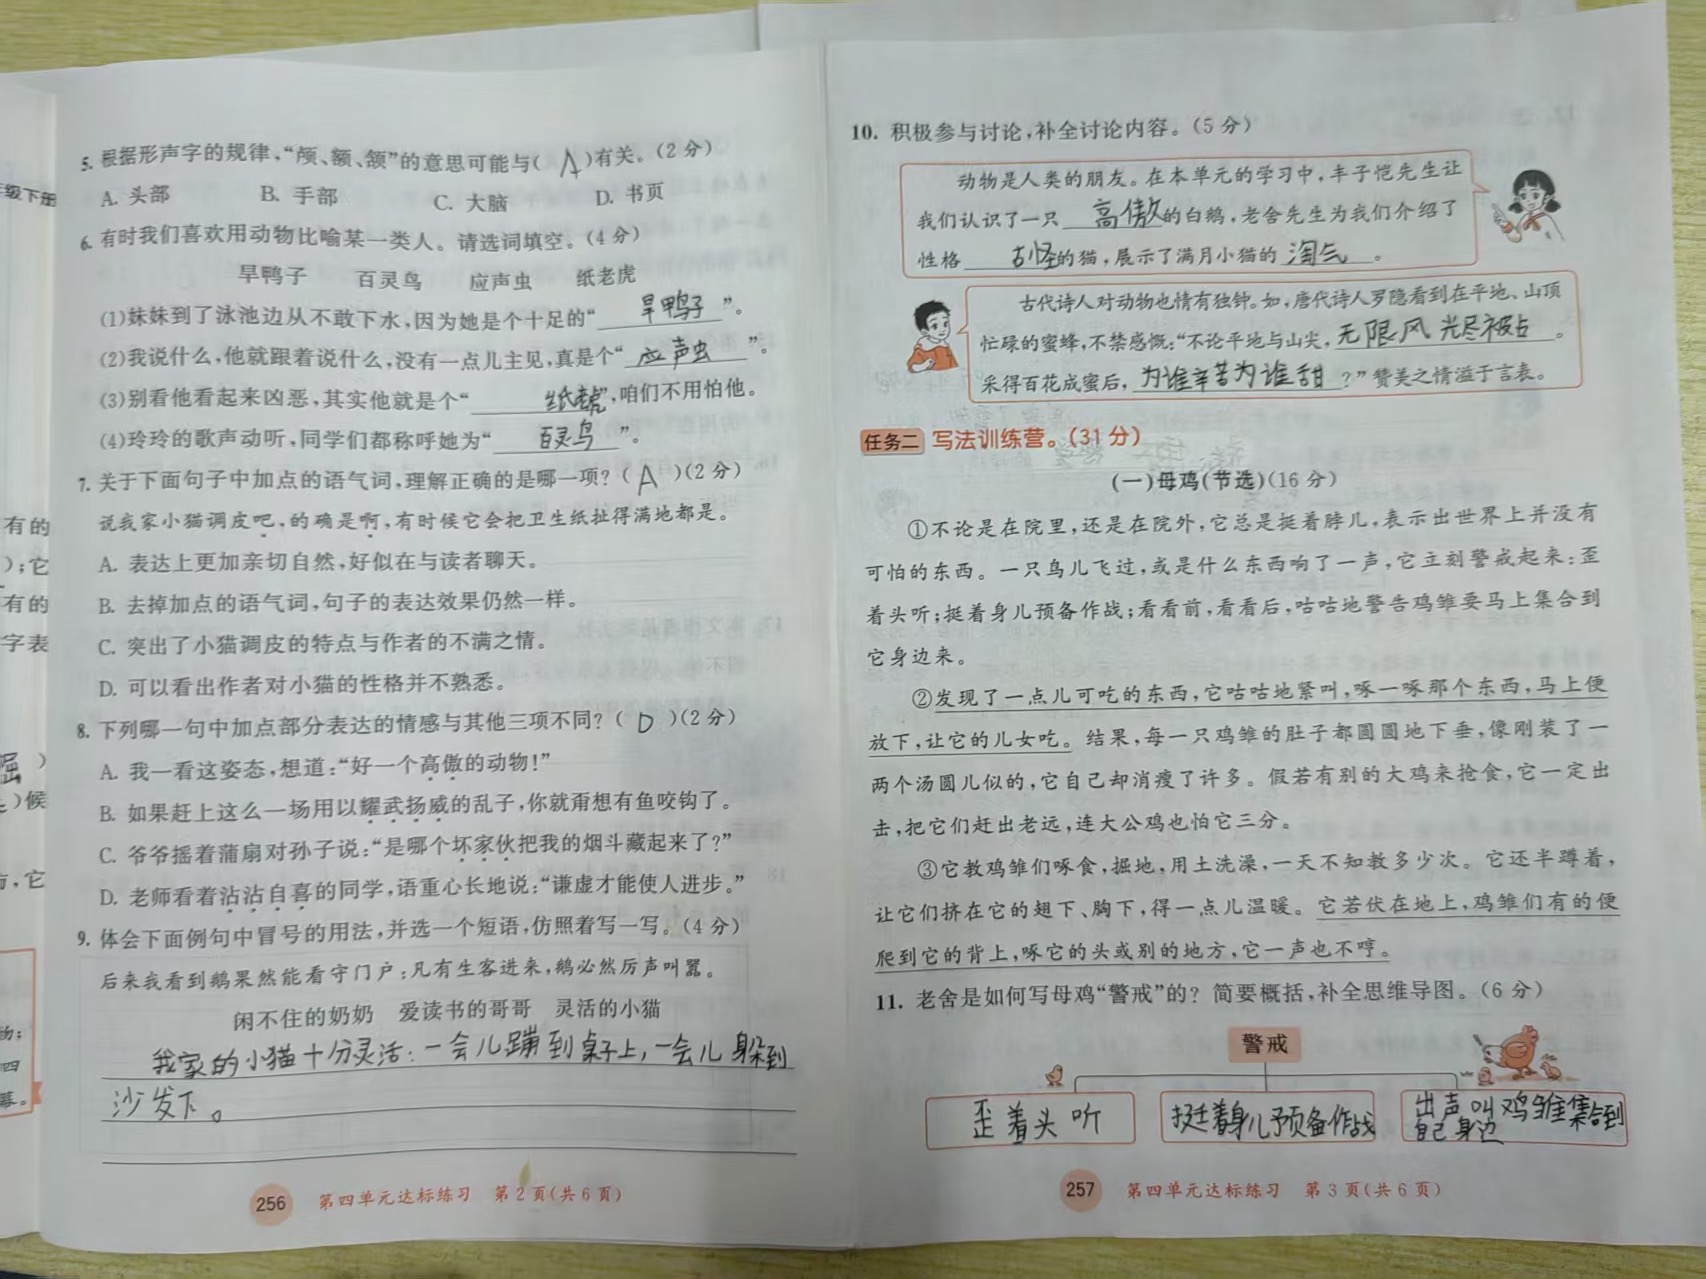 级下册
有的
);它
有的
字表
掘 )
)候
,它
物;
四
5. 根据形声字的规律,“颅、额、颔”的意思可能与( A )有关。(2分)
A. 头部 B. 手部 C. 大脑 D. 书页
6. 有时我们喜欢用动物比喻某一类人。请选词填空。(4分)
旱鸭子 百灵鸟 应声虫 纸老虎
(1)妹妹到了泳池边从不敢下水,因为她是个十足的“旱鸭子”。
(2)我说什么,他就跟着说什么,没有一点儿主见,真是个“应声虫”。
(3)别看他看起来凶恶,其实他就是个“纸老虎”,咱们不用怕他。
(4)玲玲的歌声动听,同学们都称呼她为“百灵鸟”。
7. 关于下面句子中加点的语气词,理解正确的是哪一项?( A )(2分)
说我家小猫调皮吧,的确是啊,有时候它会把卫生纸扯得满地都是。
A. 表达上更加亲切自然,好似在与读者聊天。
B. 去掉加点的语气词,句子的表达效果仍然一样。
C. 突出了小猫调皮的特点与作者的不满之情。
D. 可以看出作者对小猫的性格并不熟悉。
8. 下列哪一句中加点部分表达的情感与其他三项不同?( D )(2分)
A. 我一看这姿态,想道:“好一个高傲的动物!”
B. 如果赶上这么一场用以耀武扬威的乱子,你就甭想有鱼咬钩了。
C. 爷爷摇着蒲扇对孙子说:“是哪个坏家伙把我的烟斗藏起来了?”
D. 老师看着沾沾自喜的同学,语重心长地说:“谦虚才能使人进步。”
9. 体会下面例句中冒号的用法,并选一个短语,仿照着写一写。(4分)
后来我看到鹅果然能看守门户:凡有生客进来,鹅必然厉声叫嚣。
闲不住的奶奶 爱读书的哥哥 灵活的小猫
我家的小猫十分灵活:一会儿蹦到桌子上,一会儿躲到
沙发下。
256 第四单元达标练习 第2页(共6页)
10. 积极参与讨论,补全讨论内容。(5分)
动物是人类的朋友。在本单元的学习中,丰子恺先生让
我们认识了一只 高傲的白鹅,老舍先生为我们介绍了
性格 古怪的猫,展示了满月小猫的 淘气 。
古代诗人对动物也情有独钟。如,唐代诗人罗隐看到在平地、山顶
忙碌的蜜蜂,不禁感慨:“不论平地与山尖,无限风光尽被占 。
采得百花成蜜后,为谁辛苦为谁甜 ?”赞美之情溢于言表。
任务二 写法训练营。(31分)
(一)母鸡(节选)(16分)
①不论是在院里,还是在院外,它总是挺着脖儿,表示出世界上并没有
可怕的东西。一只鸟儿飞过,或是什么东西响了一声,它立刻警戒起来:歪
着头听;挺着身儿预备作战;看看前,看看后,咕咕地警告鸡雏要马上集合到
它身边来。
②发现了一点儿可吃的东西,它咕咕地紧叫,啄一啄那个东西,马上便
放下,让它的儿女吃。结果,每一只鸡雏的肚子都圆圆地下垂,像刚装了一
两个汤圆儿似的,它自己却消瘦了许多。假若有别的大鸡来抢食,它一定出
击,把它们赶出老远,连大公鸡也怕它三分。
③它教鸡雏们啄食,掘地,用土洗澡,一天不知教多少次。它还半蹲着,
让它们挤在它的翅下、胸下,得一点儿温暖。它若伏在地上,鸡雏们有的便
爬到它的背上,啄它的头或别的地方,它一声也不哼。
11. 老舍是如何写母鸡“警戒”的?简要概括,补全思维导图。(6分)
警戒
歪着头听 挺着身儿预备作战 出声叫鸡雏集合到
自己身边
257 第四单元达标练习 第3页(共6页)